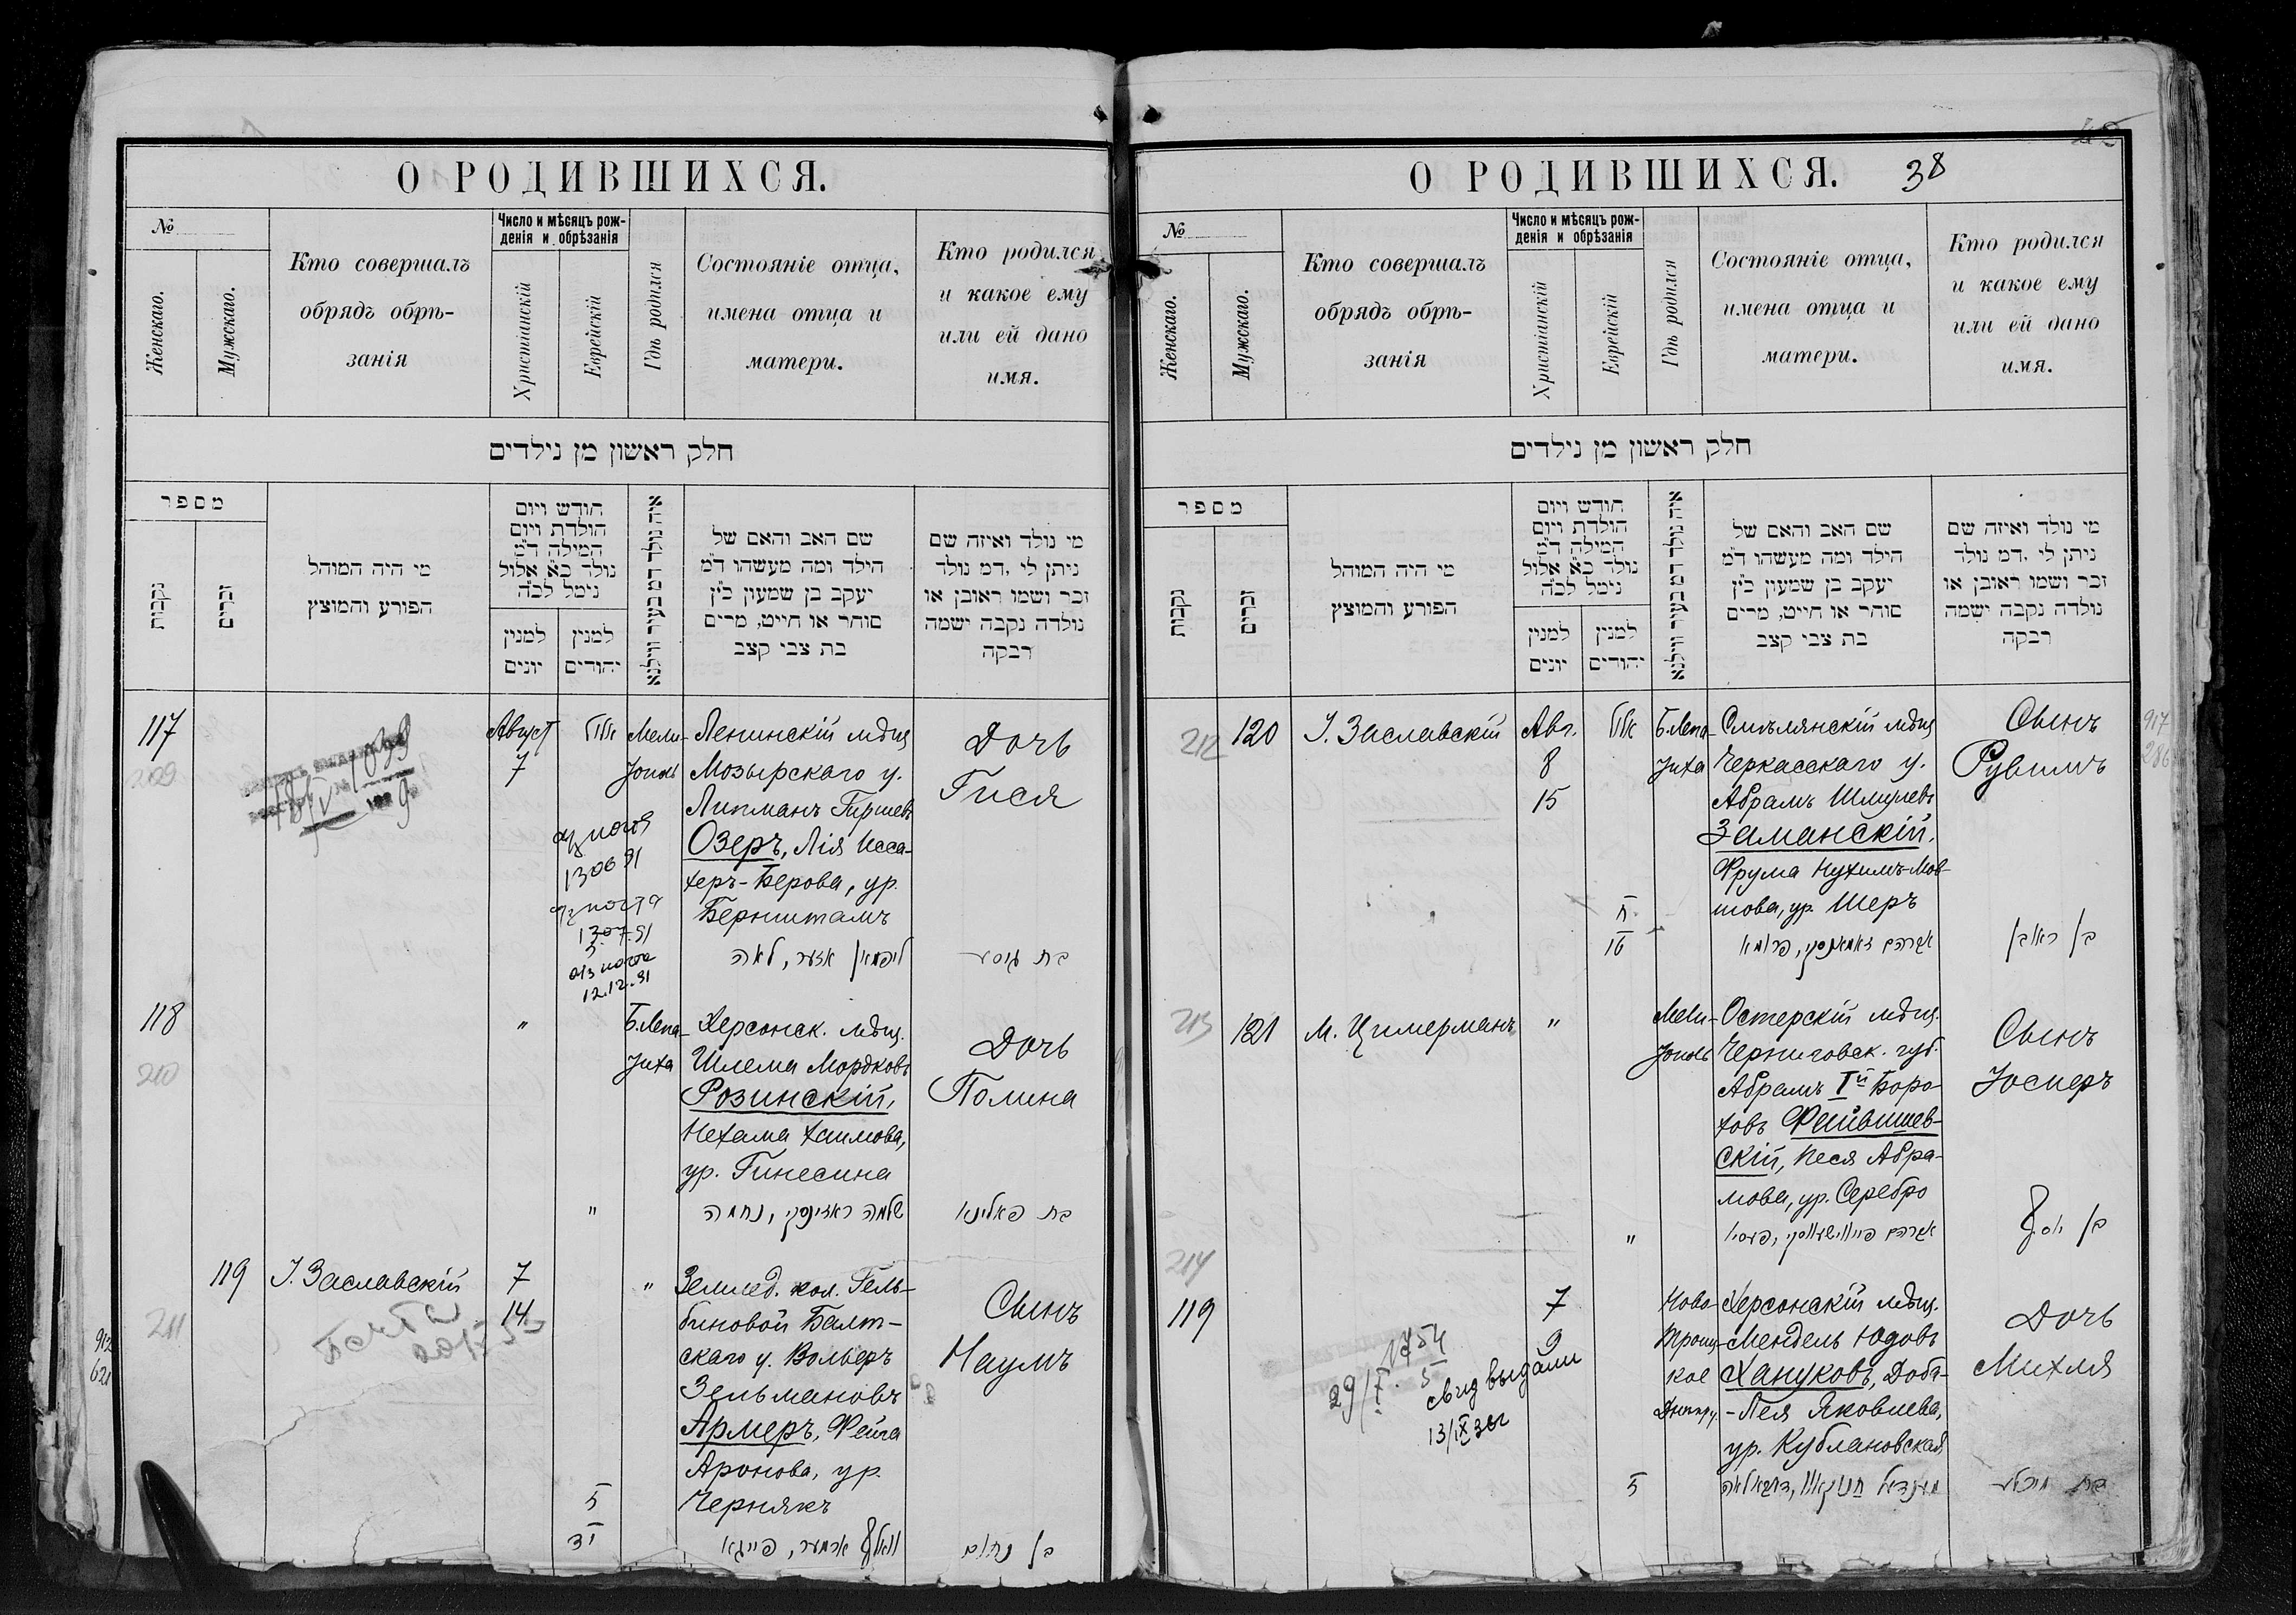 О РОДИВШИХСЯ.
№
Женскаго.
Мужскаго.
Кто совершалъ
обрядъ обрѣ-
занія
Число и мѣсяцъ рож-
денія и обрѣзанія
Христіанскій
Еврейскій
Гдѣ родился
Состояніе отца,
имена отца и
матери.
Кто родился
и какое ему
или ей дано
имя.
חלק ראשון מן נילדים
מספר
נקבות
זכרים
מי היה המוהל
הפורע והמוצץ
חודש ויום
הולדת ויום
המילה ד״מ
נולד כ״א אלול
נימל לכ״ה
למנין
יונים
למנין
יהודים
איה נולד דמ בעיר ווילנא
שם האב והאם של
הילד ומה מעשהו ד״מ
יעקב בן שמעון כ״ץ
סוחר או חייט, מרים
בת צבי קצב
מי נולד ואיזה שם
ניתן לי .דמ נולד
זכר ושמו ראובן או
נולדה נקבה ישמה
רבקה
117
209
1039
Август
7
Мели-
тополь
Ленинскій мѣщ.
Мозырскаго у.
Липманъ Гиршевъ
Озеръ, Лія Исса-
херъ-Берова, ур.
Бернштамъ
ליפמאן אזער, לאה
Дочь
Гися
בת גיסע
13 06 91
12.12.91
118
210
"
Б. Лепа-
тиха
Херсонск. мѣщ.
Шлема Мордковъ
Розинскій,
Нехама Хаимова,
ур. Гинесина
"
שלמה ראזינסקי, נחמה
Дочь
Полина
בת פאלינא
119
211
І. Заславскій
7
14
"
Землед. кол. Гель-
биновой Балт-
скаго у. Вольфъ
Зельмановъ
Армеръ, Фейга
Аронова, ур.
Чернякъ
ה
וואלף ארמער, פייגא
Сынъ
Наумъ
בן נחום
912
621
О РОДИВШИХСЯ.
38
42
№
Женскаго.
Мужскаго.
Кто совершалъ
обрядъ обрѣ-
занія
Число и мѣсяцъ рож-
денія и обрѣзанія
Христіанскій
Еврейскій
Гдѣ родился
Состояніе отца,
имена отца и
матери.
Кто родился
и какое ему
или ей дано
имя.
חלק ראשון מן נילדים
מספר
נקבות
זכרים
מי היה המוהל
הפורע והמוצץ
חודש ויום
הולדת ויום
המילה ד״מ
נולד כ״א אלול
נימל לכ״ה
למנין
יונים
למנין
יהודים
איה נולד דמ בעיר ווילנא
שם האב והאם של
הילד ומה מעשהו ד״מ
יעקב בן שמעון כ״ץ
סוחר או חייט, מרים
בת צבי קצב
מי נולד ואיזה שם
ניתן לי .דמ נולד
זכר ושמו ראובן או
נולדה נקבה ישמה
רבקה
212
120
І. Заславскій
Авг.
8
15
Б. Лепа-
тиха
Смѣлянскій мѣщ.
Черкасскаго у.
Абрамъ Шмулевъ
Заманскій,
Фрума Нухимъ-Мов-
шова, ур. Шеръ
אברהם זאמאנסקי, פרומא
Сынъ
Рувимъ
בן ראובן
917
286
213
121
М. Цимерманъ
"
Мели-
тополь
Остерскій мѣщ.
Черниговск. губ.
Абрамъ Iй Боро-
ховъ Фейвишев-
скій, Песя Абра-
мова, ур. Серебро
"
אברהם פייווישעווסקי, פעסיא
Сынъ
Іосифъ
בן יוסף
214
119
7
9
Ново-
Троиц-
кое
Днепр. у.
Херсонскій мѣщ.
Мендель Юдовъ
Хануковъ, Доба-
-Лея Яковлева,
ур. Кублановская
ה
מענדיל חנוקאוו, דאבא לאה
Дочь
Михля
בת מיכלע
1754
29/V. 5
свид выдали
13/IX 30г